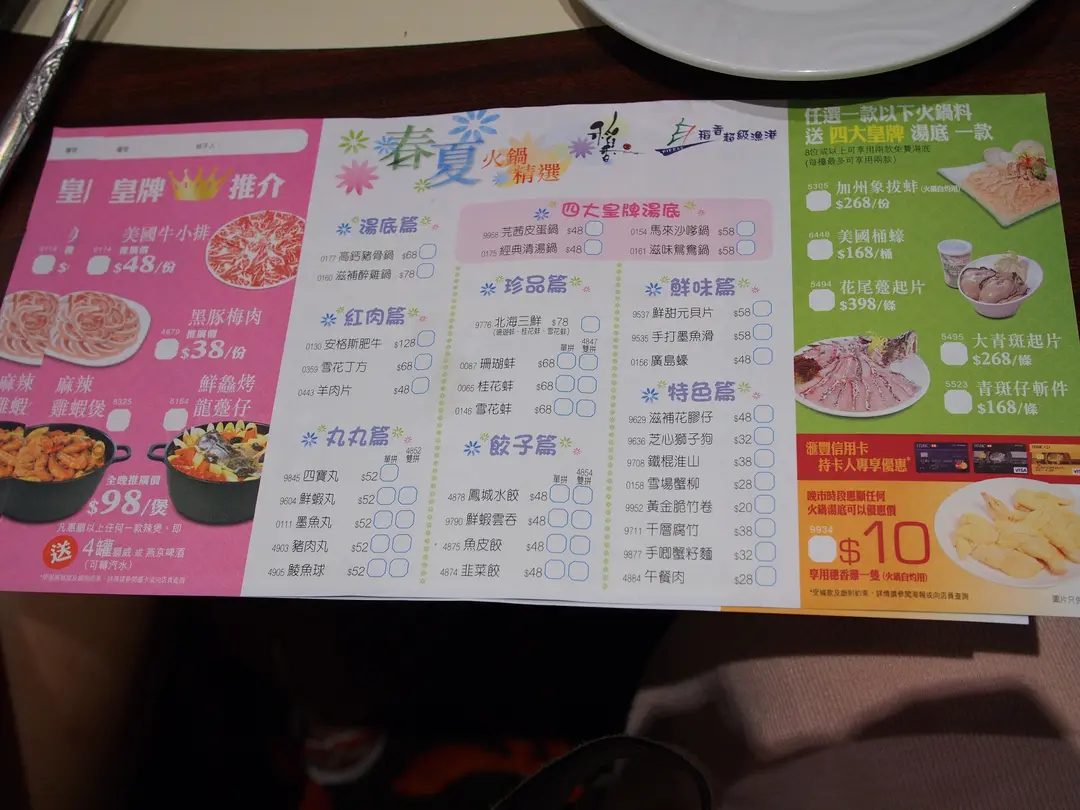 皇牌
推介
美國牛小排
0174 推廣價
$48/份
黑豚梅肉
4879 推廣價
$38/份
麻辣
雞蝦煲 8325
鮮龕烤
龍躉仔
8164
全晚推廣價
$98/煲
凡惠顧以上任何一款辣煲，即
送 4罐 或 燕京啤酒
(可轉汽水)
春夏 火鍋精選
稻香
稻香超級漁港
湯底篇
0177 高鈣豬骨鍋 $68
0160 滋補醉雞鍋 $78
四大皇牌湯底
9958 芫茜皮蛋鍋 $48
0154 馬來沙嗲鍋 $58
0175 經典清湯鍋 $48
0161 滋味鴛鴦鍋 $58
紅肉篇
0130 安格斯肥牛 $128
0359 雪花丁方 $68
0443 羊肉片 $48
珍品篇
9776 北海三鮮 $78
(珊瑚蚌、桂花蚌、雪花蚌)
單拼 4847 雙拼
0087 珊瑚蚌 $68
0065 桂花蚌 $68
0146 雪花蚌 $68
鮮味篇
9537 鮮甜元貝片 $58
9535 手打墨魚滑 $58
0156 廣島蠔 $48
丸丸篇
單拼 4852 雙拼
9845 四寶丸 $52
9604 鮮蝦丸 $52
0111 墨魚丸 $52
4903 豬肉丸 $52
4905 鯪魚球 $52
餃子篇
單拼 4854 雙拼
4878 鳳城水餃 $48
9790 鮮蝦雲吞 $48
4875 魚皮餃 $48
4874 韭菜餃 $48
特色篇
9629 滋補花膠仔 $48
9636 芝心獅子狗 $32
9708 鐵棍淮山 $38
0158 雪場蟹柳 $28
9952 黃金脆竹卷 $20
9711 千層腐竹 $38
9877 手唧蟹籽麵 $32
4884 午餐肉 $28
任選一款以下火鍋料
送 四大皇牌 湯底 一款
8位或以上可享用兩款免費湯底
(每檯最多可享用兩款)
5305 加州象拔蚌(火鍋自灼用)
$268/份
8448 美國桶蠔
$168/桶
5494 花尾躉起片
$398/條
5495 大青斑起片
$268/條
5523 青斑仔斬件
$168/條
滙豐信用卡
持卡人專享優惠
晚市時段惠顧任何
火鍋湯底可以優惠價
9934 $10
享用穗香雞一隻(火鍋自灼用)
*受條款及細則約束，詳情請參閱海報或向店員查詢
圖片只供